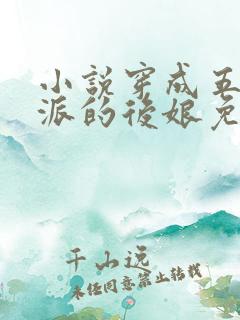 小說穿成五
派的後娘免
千山远
未经同意禁止转载